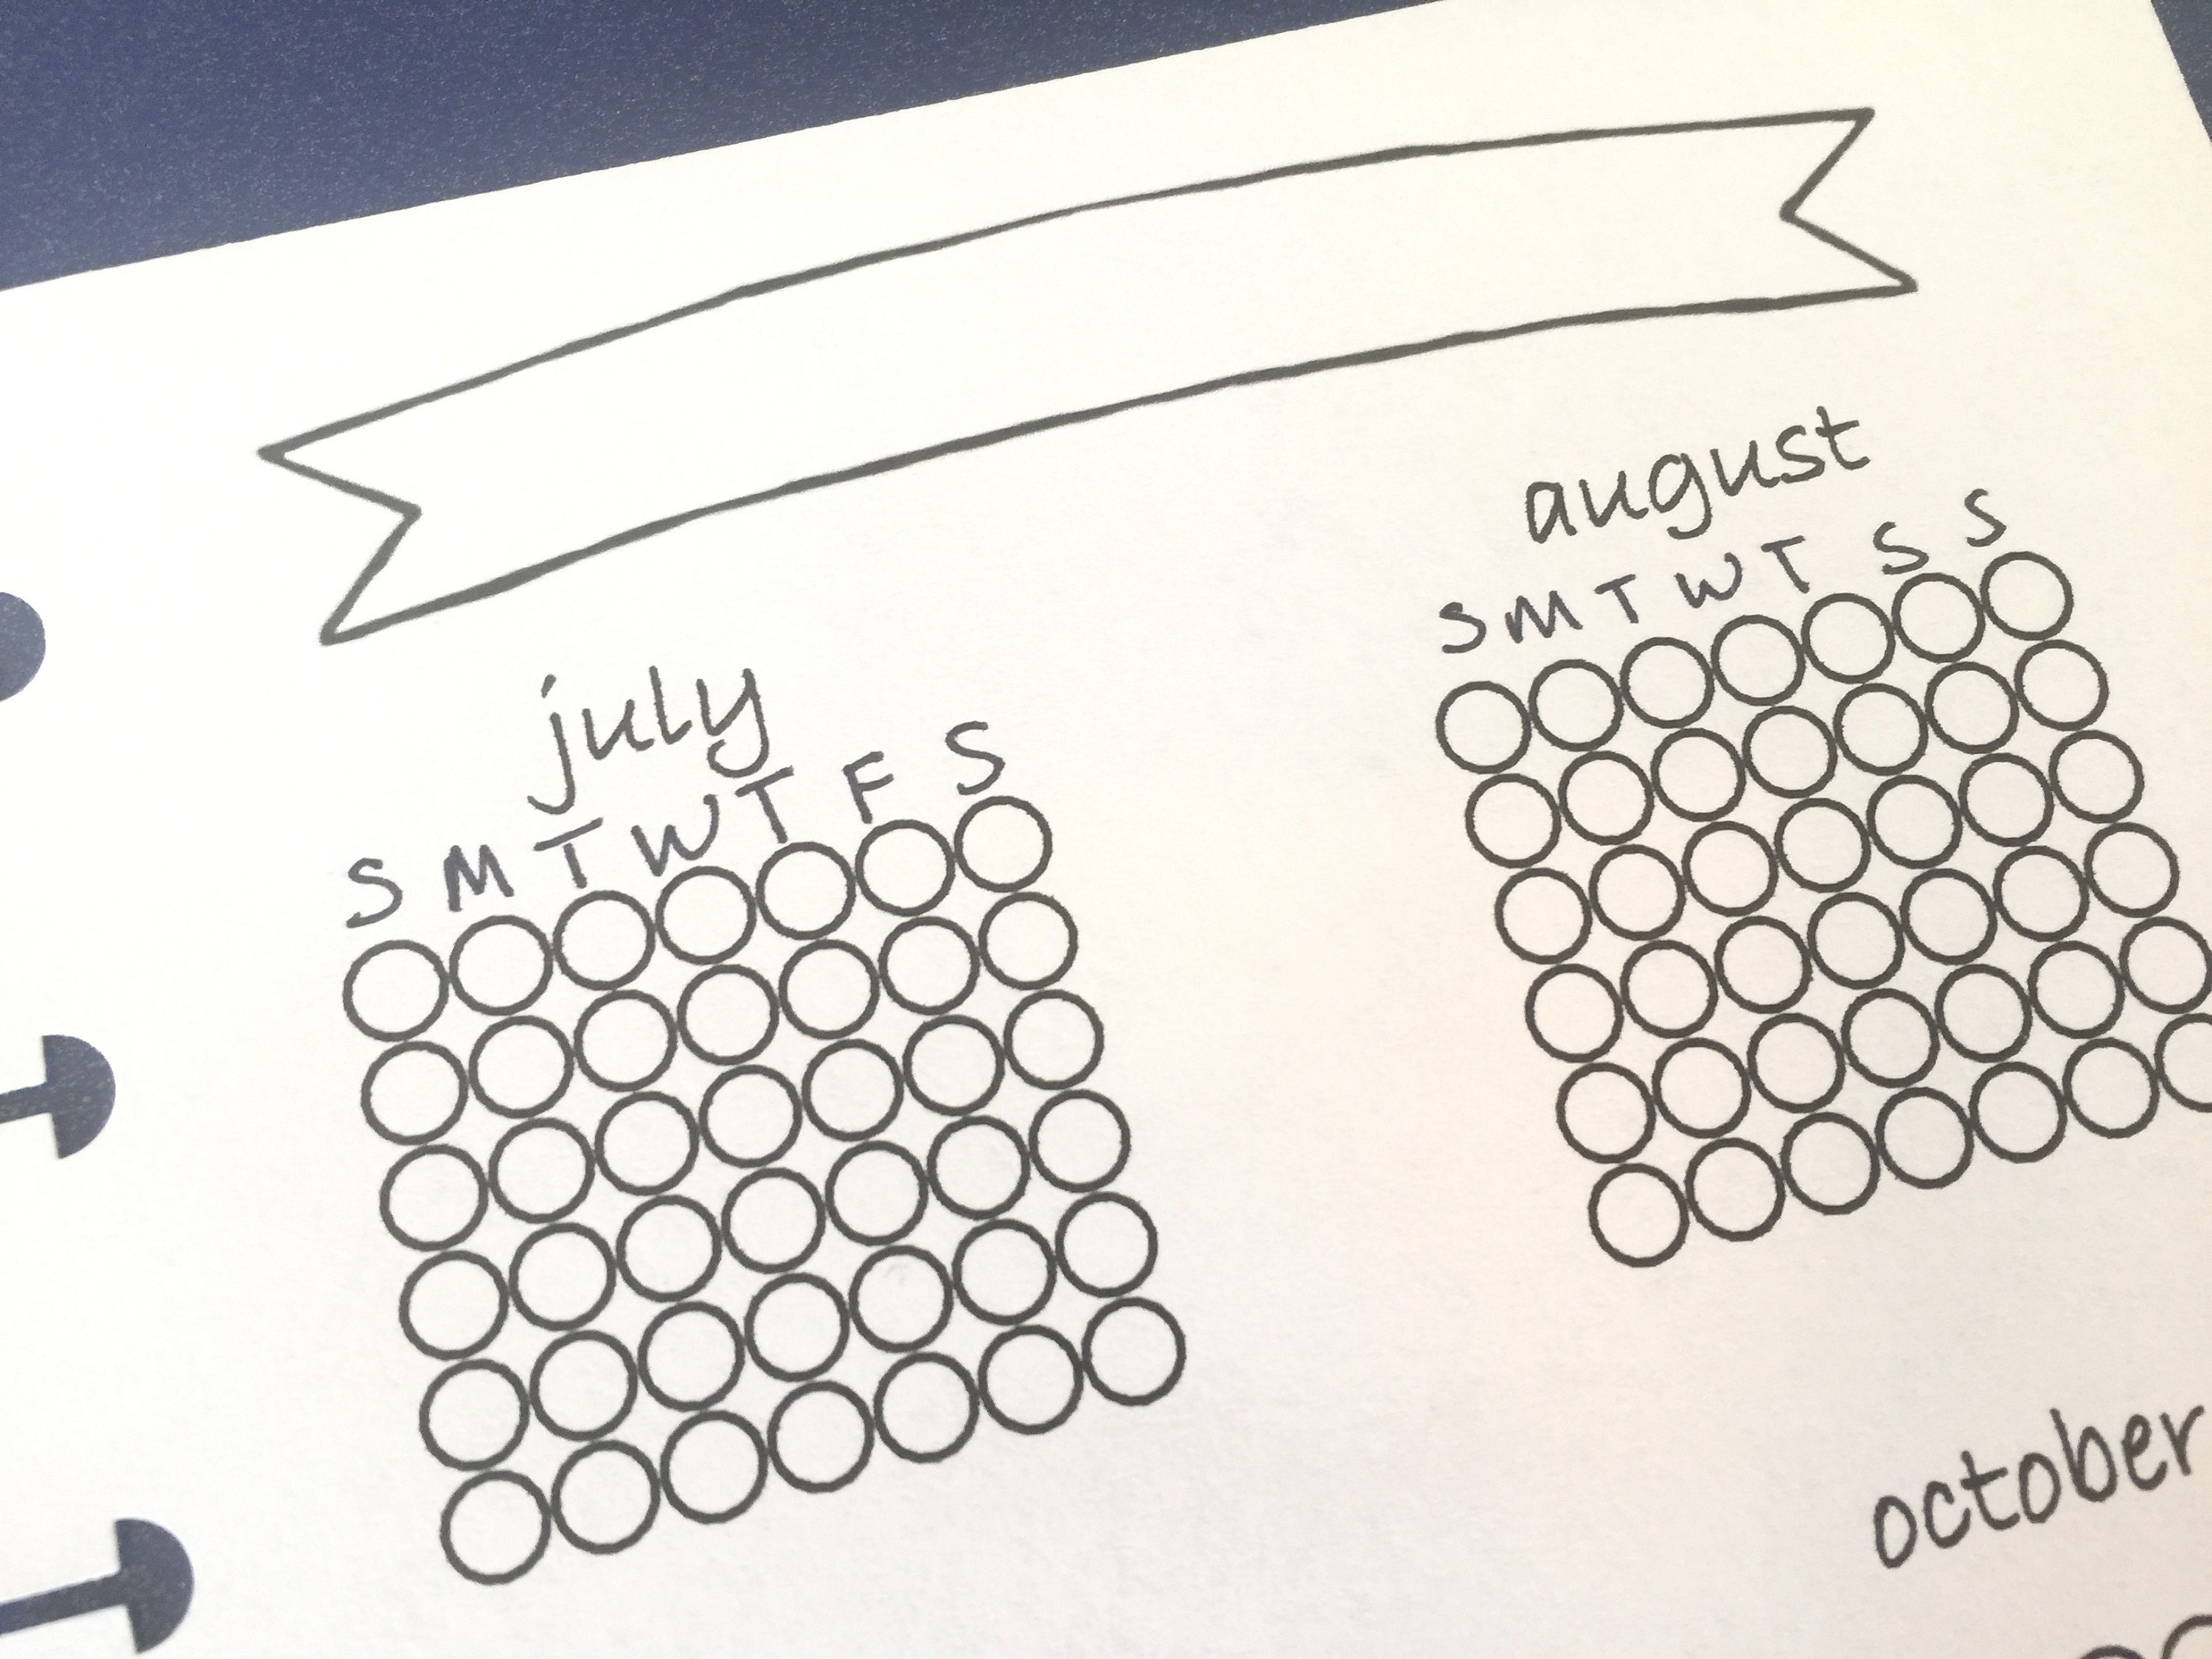 july
S M T W T F S
august
S M T W T S S
october